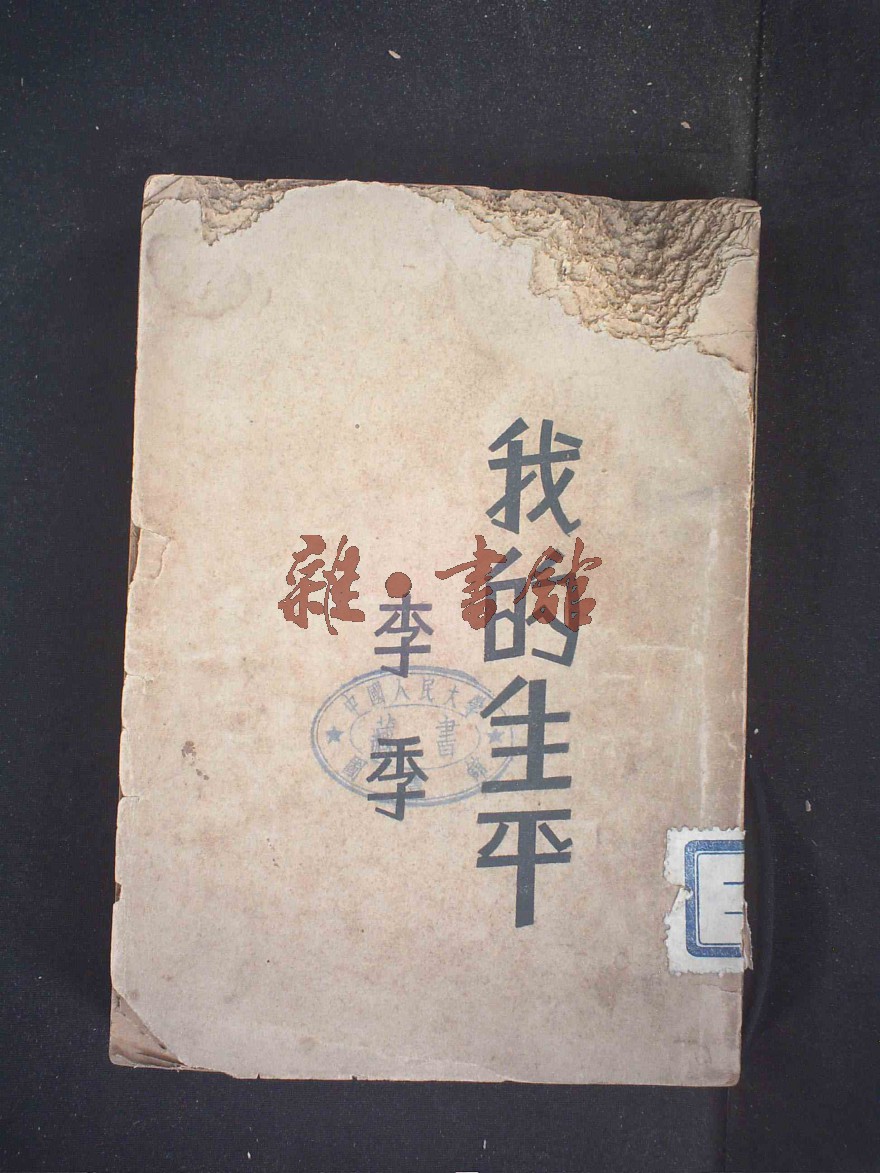 我的生平
李季
雜·書館
中國人民大學
藏書
圖